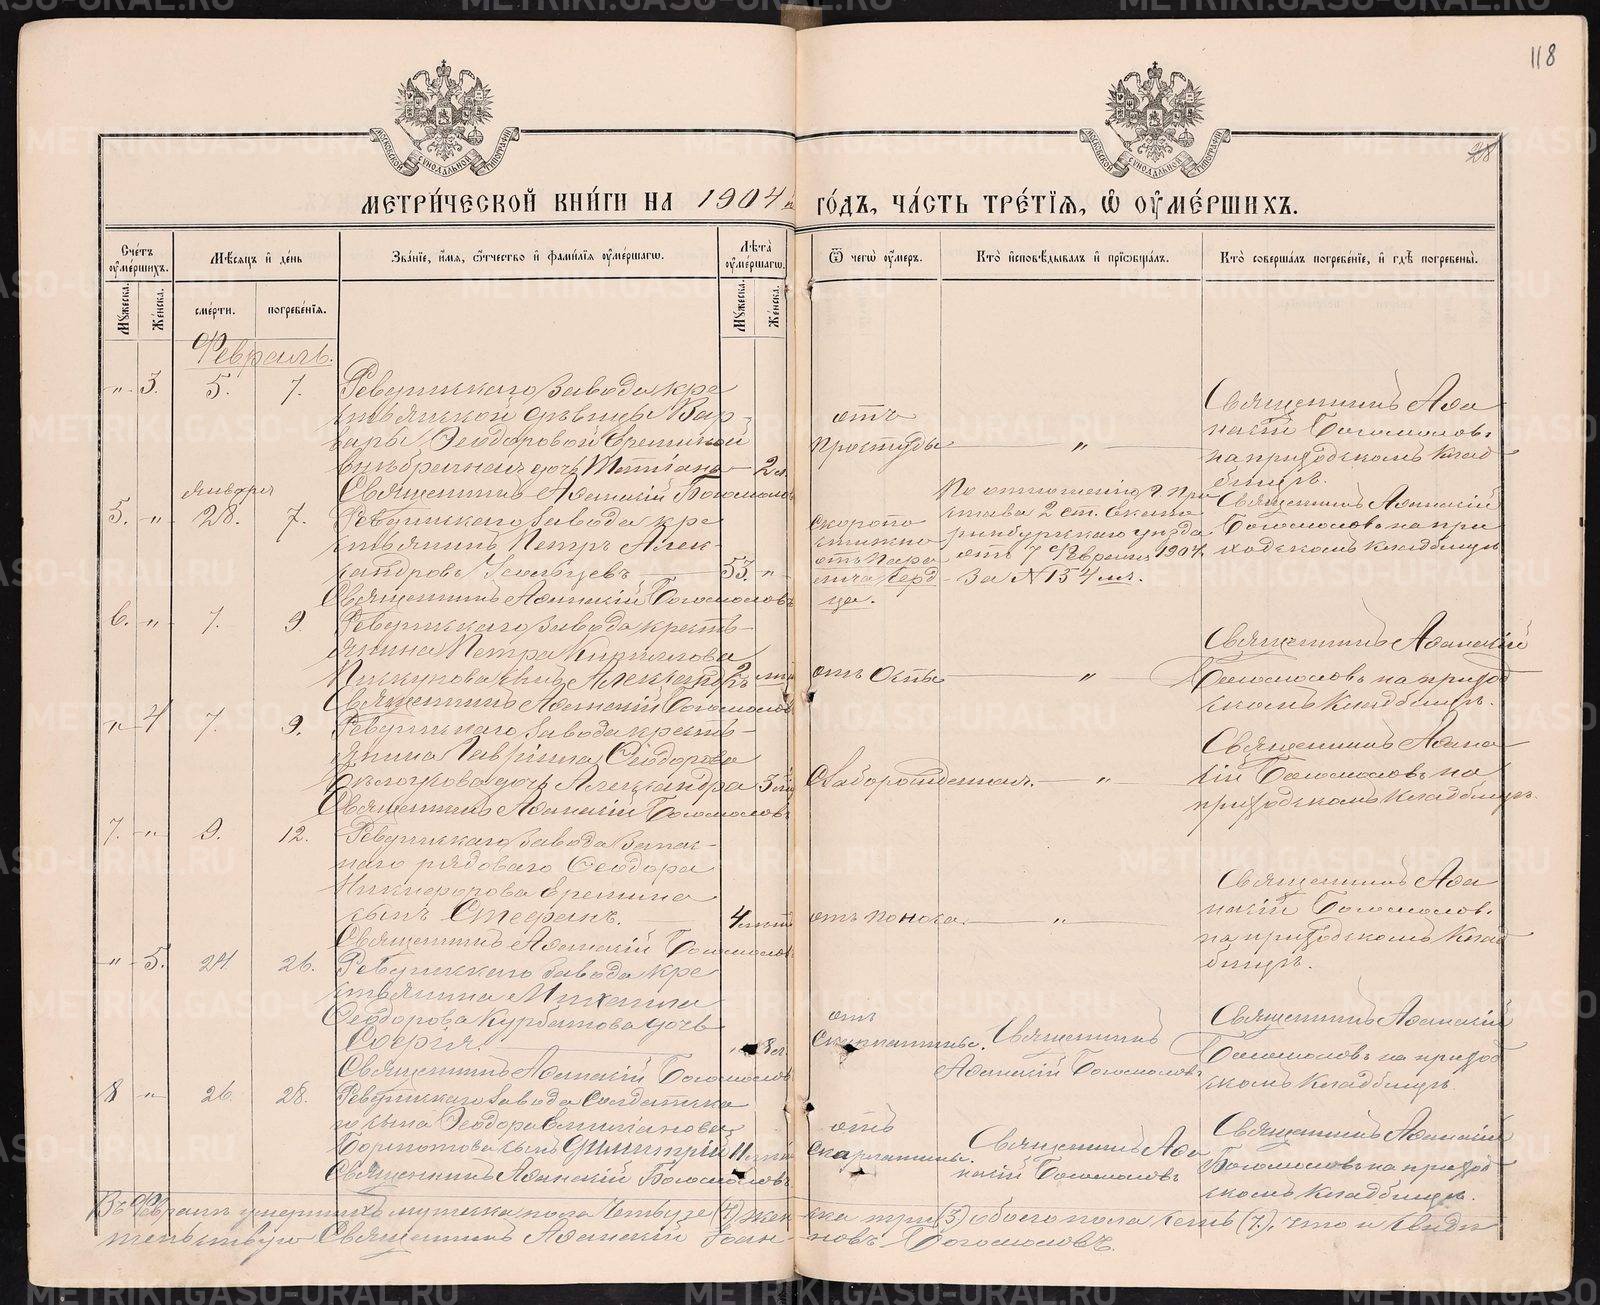 118
28
МОСКОВСКОЙ СѴНОДАЛЬНОЙ ТИПОГРАФІИ
МОСКОВСКОЙ СѴНОДАЛЬНОЙ ТИПОГРАФІИ
МЕТРИ́ЧЕСКОЙ КНИ́ГИ НА 1904 й
ГО́ДЪ, ЧА́СТЬ ТРЕ́ТІѦ, Ѡ ОУМЕ́РШИХЪ.
Сче́тъ оумершихъ.
Мѣсяцъ и день
Зва́ніе, и́мя, ѻтчество и фами́лія оуме́ршагѡ.
Лѣта̀ оуме́ршагѡ.
Ѿ чегѡ̀ оумеръ.
Кто̀ исповѣ́дывалъ и пріѡбща́лъ.
Кто̀ соверша́лъ погребе́ніе, и гдѣ̀ погребены̀.
Мꙋжеска.
Же́нска.
сме́рти.
погребе́нія.
Мꙋжеска.
Же́нска.
Февраль.
" 3. 5. 7.
Ревдинскаго завода кре
стьянской дѣвицы Вар-
вары Ѳеодоровой Ереминой
внѣбрачная дочь Татіана 2 л.
Священникъ Аѳанасій Богомоловъ
отъ
простуды
"
Священникъ Аѳа
насій Богомоловъ
на приходскомъ клад
бищѣ.
января
5. " 28. 7.
Ревдинскаго завода кре
стьянинъ Петръ Алек-
сандровъ 53. "
Священникъ Аѳанасій Богомоловъ
скоропо
стижно
отъ пара
лича серд
ца.
По отношенію г. при
става 2 ст. Екате
ринбургскаго уѣзда
отъ 7 Февраля 1904
за № 154 мъ.
Священникъ Аѳанасій
Богомоловъ на при
ходскомъ кладбищѣ
6. " 7. 9
Ревдинскаго завода кресть-
янина Петра Кириллова
сынъ Александръ 2
Священникъ Аѳанасій Богомоловъ
отъ Оспы
"
Священникъ Аѳанасій
Богомоловъ на приход
скомъ кладбищѣ.
" 4 7. 9.
Ревдинскаго завода кресть-
янина Гавріила Ѳеодорова
дочь Александра 3
Священникъ Аѳанасій Богомоловъ
Слаборожденная.
"
Священникъ Аѳана
сій Богомоловъ на
приходскомъ кладбищѣ.
7. " 9. 12.
Ревдинскаго завода запас-
наго рядоваго Ѳеодора
Никифорова Еремина
сынъ Стефанъ. 4
Священникъ Аѳанасій Богомоловъ
отъ поноса.
"
Священникъ Аѳа
насій Богомоловъ
на приходскомъ клад
бищѣ.
" 5. 24 26.
Ревдинскаго завода кре
стьянина Михаила
Ѳеодорова Курбатова дочь
Софія. 8 л.
Священникъ Аѳанасій Богомоловъ
отъ
Скарлатины.
Священникъ
Аѳанасій Богомоловъ
Священникъ Аѳанасій
Богомоловъ на приход
скомъ кладбищѣ.
8 " 26 28.
Ревдинскаго завода солдатска
го сына Ѳеодора Емиліанова
Бормотова сынъ Димитрій 11
Священникъ Аѳанасій Богомоловъ
отъ
Скарлатины.
Священникъ Аѳа
насій Богомоловъ
Священникъ Аѳанасій
Богомоловъ на приход
скомъ кладбищѣ.
Въ Февралѣ умершихъ мужска пола четыре (4) жен-ска три (3) обоего пола семь (7), что и свидѣ
тельствую Священникъ Аѳанасій Іоан-новъ Богомоловъ.
METRIKI.GASO-URAL.RU